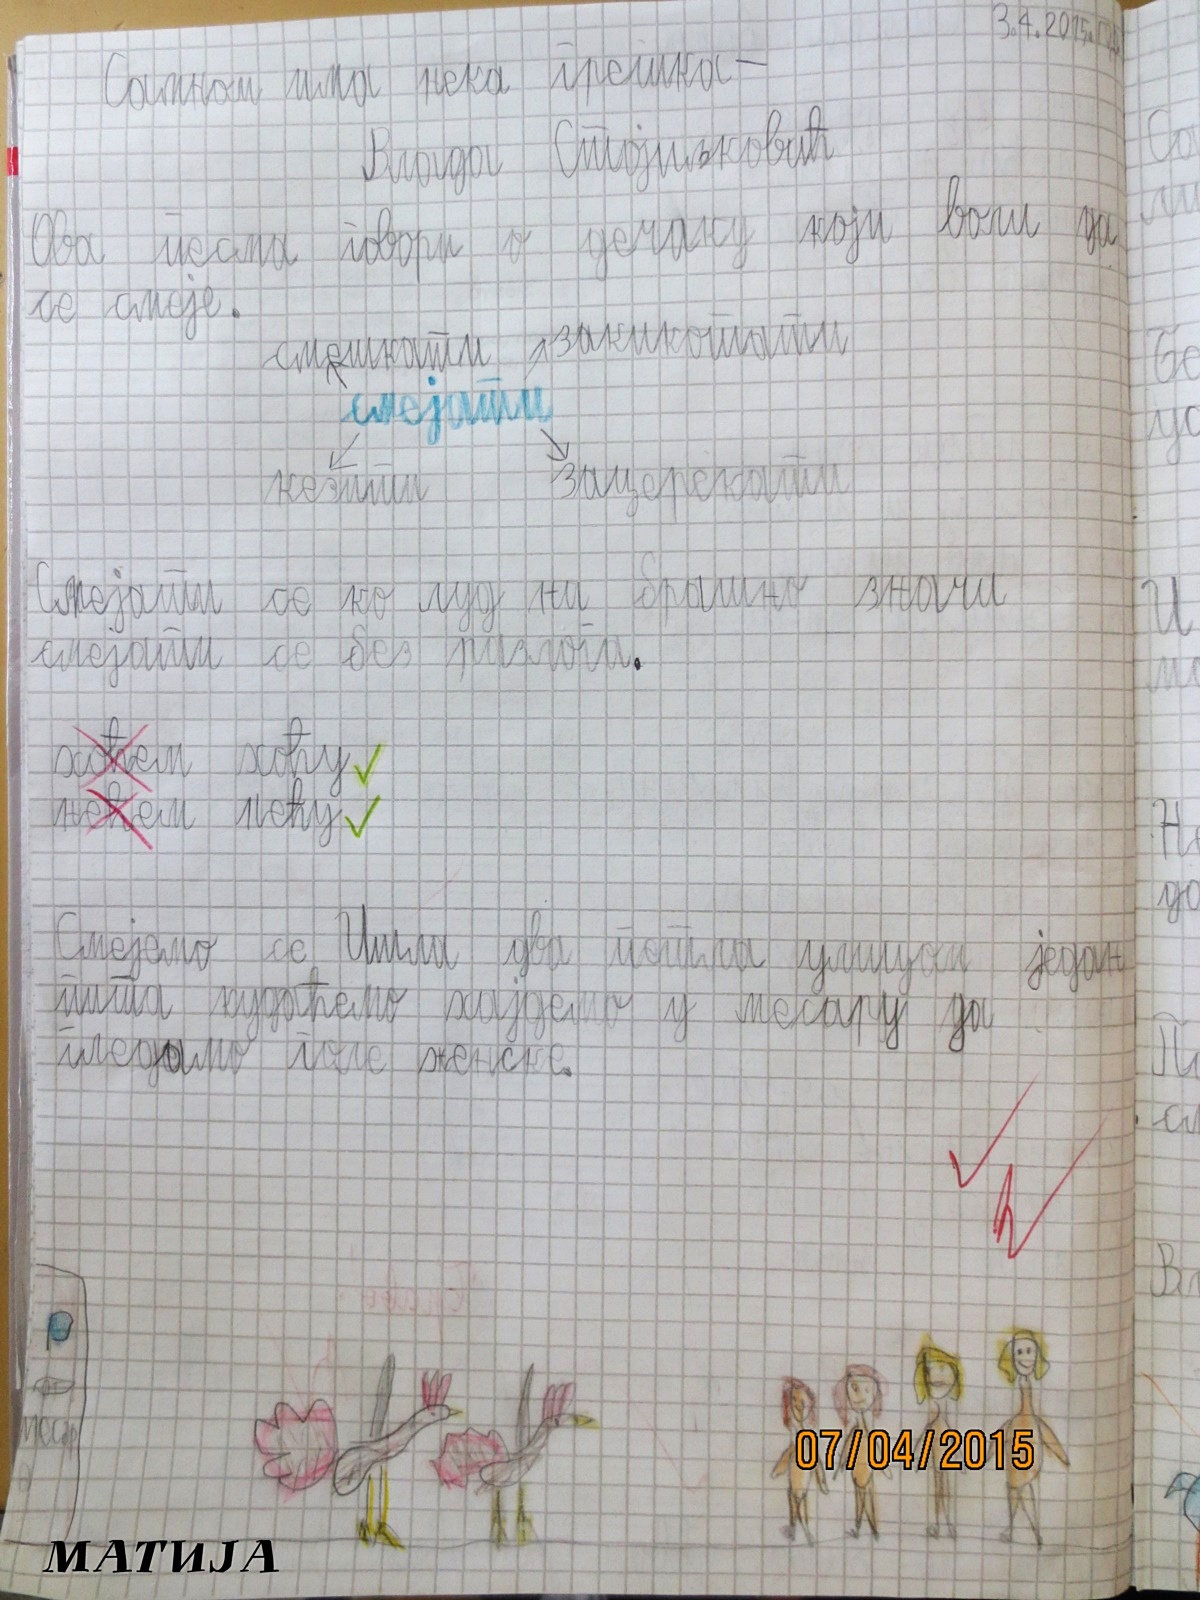 3.4.2015. год
Са мном има нека грешка–
Влада Стојиљковић
Ова песма говори о дечаку који воли да
се смеје.
смешкати закикотати
смејати
кезити зацерекати
Смејати се ко луд на брашно значи
смејати се без разлога.
хоћем хоћу
нећем нећу
Смејемо се Ишла два петла улицом један
пита куда ћемо хајдемо у месару да
гледамо голе женске.
Месар
а
07/04/2015
МАТИЈА